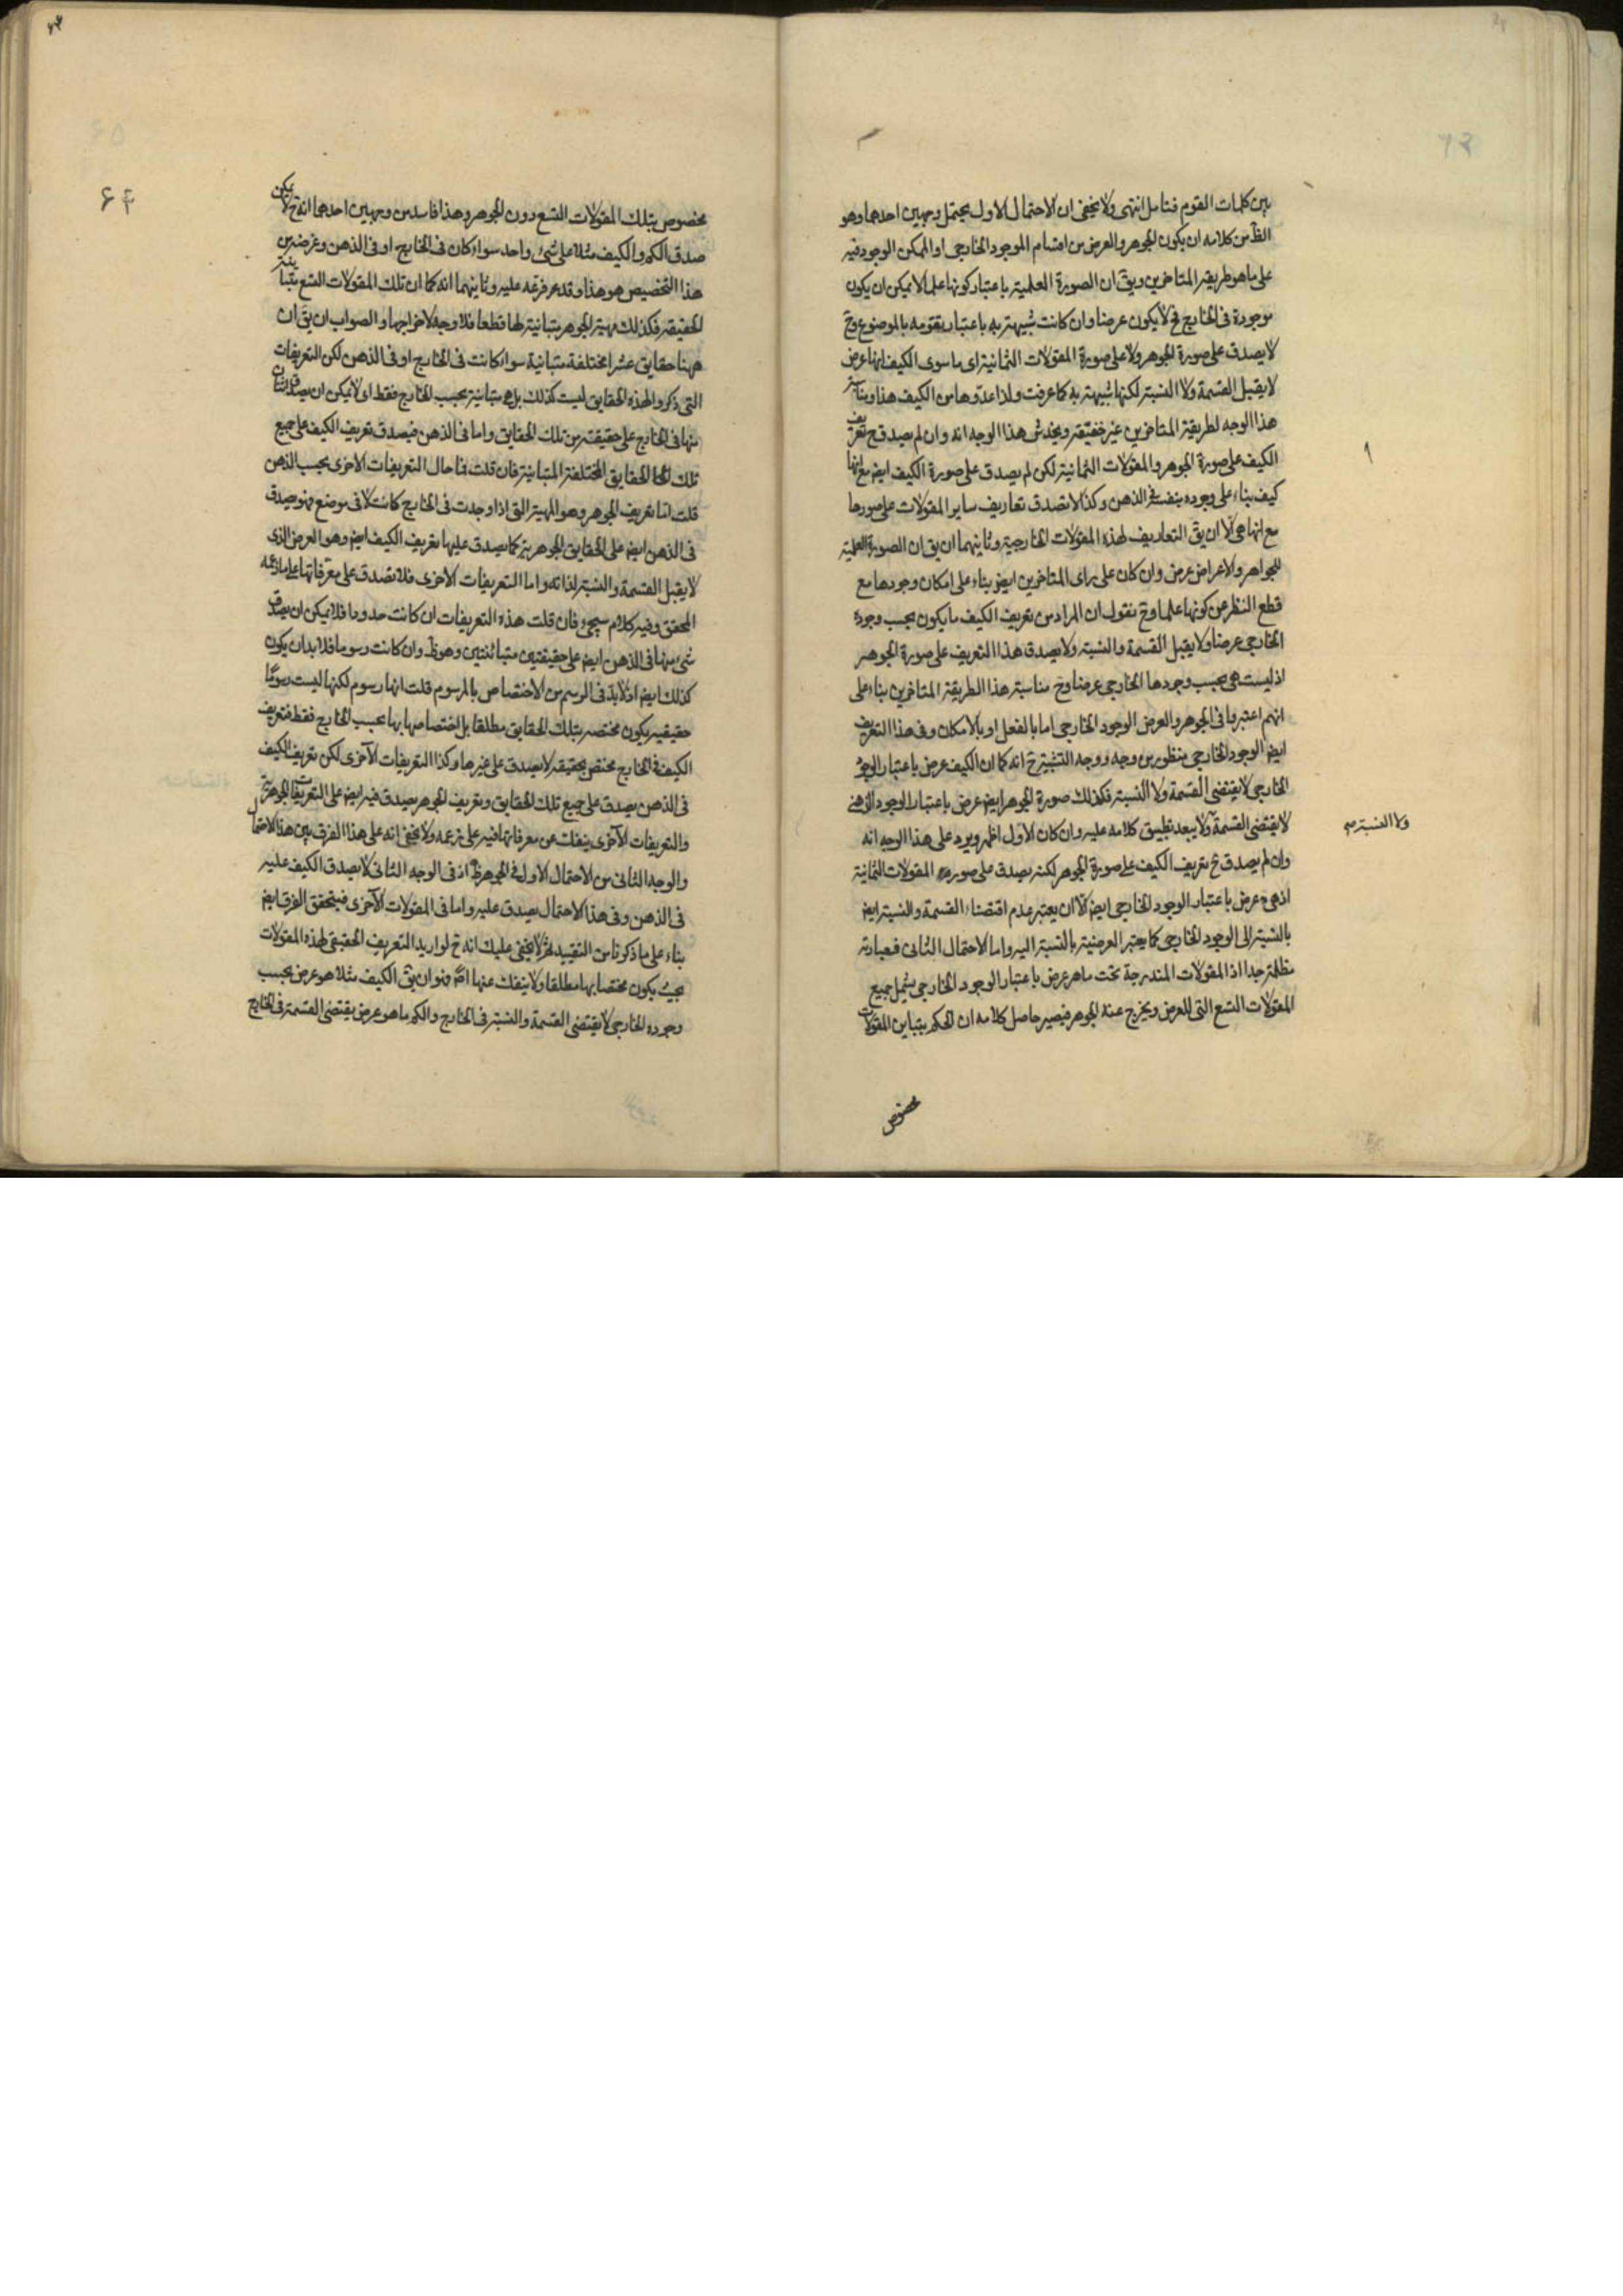 بين كلمات القوم فتامل انتهى ولا يخفى ان الاحتمال الاول يحتمل وجهين احدهما وهو
الظ من كلامه ان يكون الجوهر والعرض من اقسام الموجود الخارجى او الممكن الوجود فيه
على ما هو طريقة المتاخرين ويق ان الصورة العلمية باعتبار كونها علما لا يمكن ان يكون
موجودة فى الخارج فح لا يكون عرضا وان كانت شبيهة به باعتبار تقومه بالموضوع وح
لا يصدق على صورة الجوهر ولا على صورة المقولات الثمانية اى ما سوى الكيف انها عرض
لا يقبل القسمة ولا النسبة لكنها شبيهة به كما عرفت ولذا عدوها من الكيف هذا ومناسبة
هذا الوجه لطريقة المتاخرين غير خفية ويخدش هذا الوجه انه وان لم يصدق ح تعريف
الكيف على صورة الجوهر والمقولات الثمانية لكن لم يصدق على صورة الكيف ايض مع انها
كيف بناء على وجوده بنفسه فى الذهن وكذا لا تصدق تعاريف ساير المقولات على صورها
مع انها هى الا ان يق التعاريف لهذه المقولات الخارجية وثانيهما ان يق ان الصورة العلمية
للجواهر والاعراض عرض وان كان على راى المتاخرين ايض بناء على امكان وجودها مع
قطع النظر عن كونها علما وح نقول ان المراد من تعريف الكيف ما يكون بحسب وجوده
الخارجى عرضا ولا يقبل القسمة والنسبة ولا يصدق هذا التعريف على صورة الجوهر
اذ ليست هى بحسب وجودها الخارجى عرضا وح مناسبة هذا الطريقة المتاخرين بناء على
انهم اعتبروا فى الجوهر والعرض الوجود الخارجى اما بالفعل او بالامكان وفى هذا التعريف
ايض الوجود الخارجى منظور من وجه ووجه التشبيه ح انه كما ان الكيف عرض باعتبار الوجود
الخارجى لا يقتضى القسمة ولا النسبة فكذلك صورة الجوهر ايض عرض باعتبار الوجود الذهنى
لا يقتضى القسمة ولا يبعد تطبيق كلامه عليه وان كان الاول اظهر ويرد على هذا الوجه انه
ولا النسبة صح
وان لم يصدق ح تعريف الكيف على صورة الجوهر لكنه يصدق على صورة المقولات الثمانية
اذ هى عرض باعتبار الوجود الخارجى ايض الا ان يعتبر عدم اقتضاء القسمة والنسبة ايض
بالنسبة الى الوجود الخارجى كما يعتبر العرضية بالنسبة اليه واما الاحتمال الثانى فعبارته
مظلمة جدا اذ المقولات المندرجة تحت ما هو عرض باعتبار الوجود الخارجى يشمل جميع
المقولات التسع التى للعرض ويخرج عنه الجوهر فيصير حاصل كلامه ان الحكم بتباين المقولات
مخصوص
۶۴
مخصوص بتلك المقولات التسع دون الجوهر وهذا فاسد من وجهين احدهما انه ح لا يمكن
صدق الكم والكيف مثلا على شئ واحد سواء كان فى الخارج او فى الذهن وغرضه من
هذا التخصيص هو هذا وقد فرعه عليه وثانيهما انه كما ان تلك المقولات التسع متباينة
الحقيقة فكذلك مهية الجوهر متباينة لها قطعا فلا وجه لاخراجها والصواب ان يق ان
ههنا حقايق عشرا مختلفة متباينة سواء كانت فى الخارج او فى الذهن لكن التعريفات
التى ذكروا لهذه الحقايق ليست كذلك بل هى متباينة بحسب الخارج فقط اى لا يمكن ان يصدق اثنان
منها فى الخارج على حقيقة من تلك الحقايق واما فى الذهن فيصدق تعريف الكيف على جميع
تلك الحقايق المختلفة المتباينة فان قلت فما حال التعريفات الاخرى بحسب الذهن
قلت اما تعريف الجوهر وهو المهية التى اذا وجدت فى الخارج كانت لا فى موضع فهو يصدق
فى الذهن ايض على الحقايق الجوهرية كما يصدق عليها تعريف الكيف ايض وهو العرض الذى
لا يقبل القسمة والنسبة لذاته واما التعريفات الاخرى فلا تصدق على معرفاتها على ما زعمه
المحقق وفيه كلام سيجئ فان قلت هذه التعريفات ان كانت حدودا فلا يمكن ان يصدق
شئ منها فى الذهن ايض على حقيقتين متباينتين وهو ظ وان كانت رسوما فلا بد ان يكون
كذلك ايض اذ لا بد فى الرسم من الاختصاص بالمرسوم قلت انها رسوم لكنها ليست رسوما
حقيقية يكون مختصة بتلك الحقايق مطلقا بل اختصاصها بها بحسب الخارج فقط فتعريف
الكيف فى الخارج مختص بحقيقة لا يصدق على غيرها وكذا التعريفات الآخرى لكن تعريف الكيف
فى الذهن يصدق على جميع تلك الحقايق وتعريف الجوهر يصدق فيه ايض على الجوهرية
والتعريفات الآخرى ينفك عن معرفاتها فيه على زعمه ولا يخفى انه على هذا الفرق بين هذا الاحتمال
والوجه الثانى من الاحتمال الاول فى الجوهر ظ اذ فى الوجه الثانى لا يصدق الكيف عليه
فى الذهن وفى هذا الاحتمال يصدق عليه واما فى المقولات الآخرى فيتحقق الفرق ايض
بناء على ما ذكرنا من التقييد ثم لا يخفى عليك انه ح لو اريد التعريف الحقيقى لهذه المقولات
بحيث يكون مختصا بها مطلقا ولا ينفك عنها اصلا فهو ان يق الكيف مثلا هو عرض بحسب
وجوده الخارجى لا يقتضى القسمة والنسبة فى الخارج والكم ما هو عرض يقتضى القسمة فى الخارج